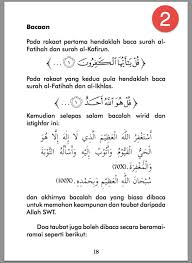 2
Bacaan
Pada rakaat pertama hendaklah baca surah al-
Fatihah dan surah al-Kafirun.
﴿ قُلْ يَٰٓأَيُّهَا ٱلْكَٰفِرُونَ ۝١ ... ﴾
Pada rakaat yang kedua pula hendaklah baca
surah al-Fatihah dan al-Ikhlas.
﴿ قُلْ هُوَ ٱللَّهُ أَحَدٌ ۝١ ... ﴾
Kemudian selepas salam bacalah wirid dan
istighfar ini:
أَسْتَغْفِرُ اللهَ الْعَظِيْمَ الَّذِي لَا إِلٰهَ إِلَّا هُوَ
الْحَيُّ الْقَيُّوْمُ وَأَتُوْبُ إِلَيْهِ وَأَسْأَلُهُ التَّوْبَةَ
وَالْمَغْفِرَةَ. (100X)
سُبْحَانَ اللهِ الْعَظِيْمِ وَبِحَمْدِهِ (100X)
dan akhirnya bacalah doa yang biasa dibaca
untuk memohon keampunan dan taubat daripada
Allah SWT.
Doa taubat juga boleh dibaca secara beramai-
ramai seperti berikut:
18